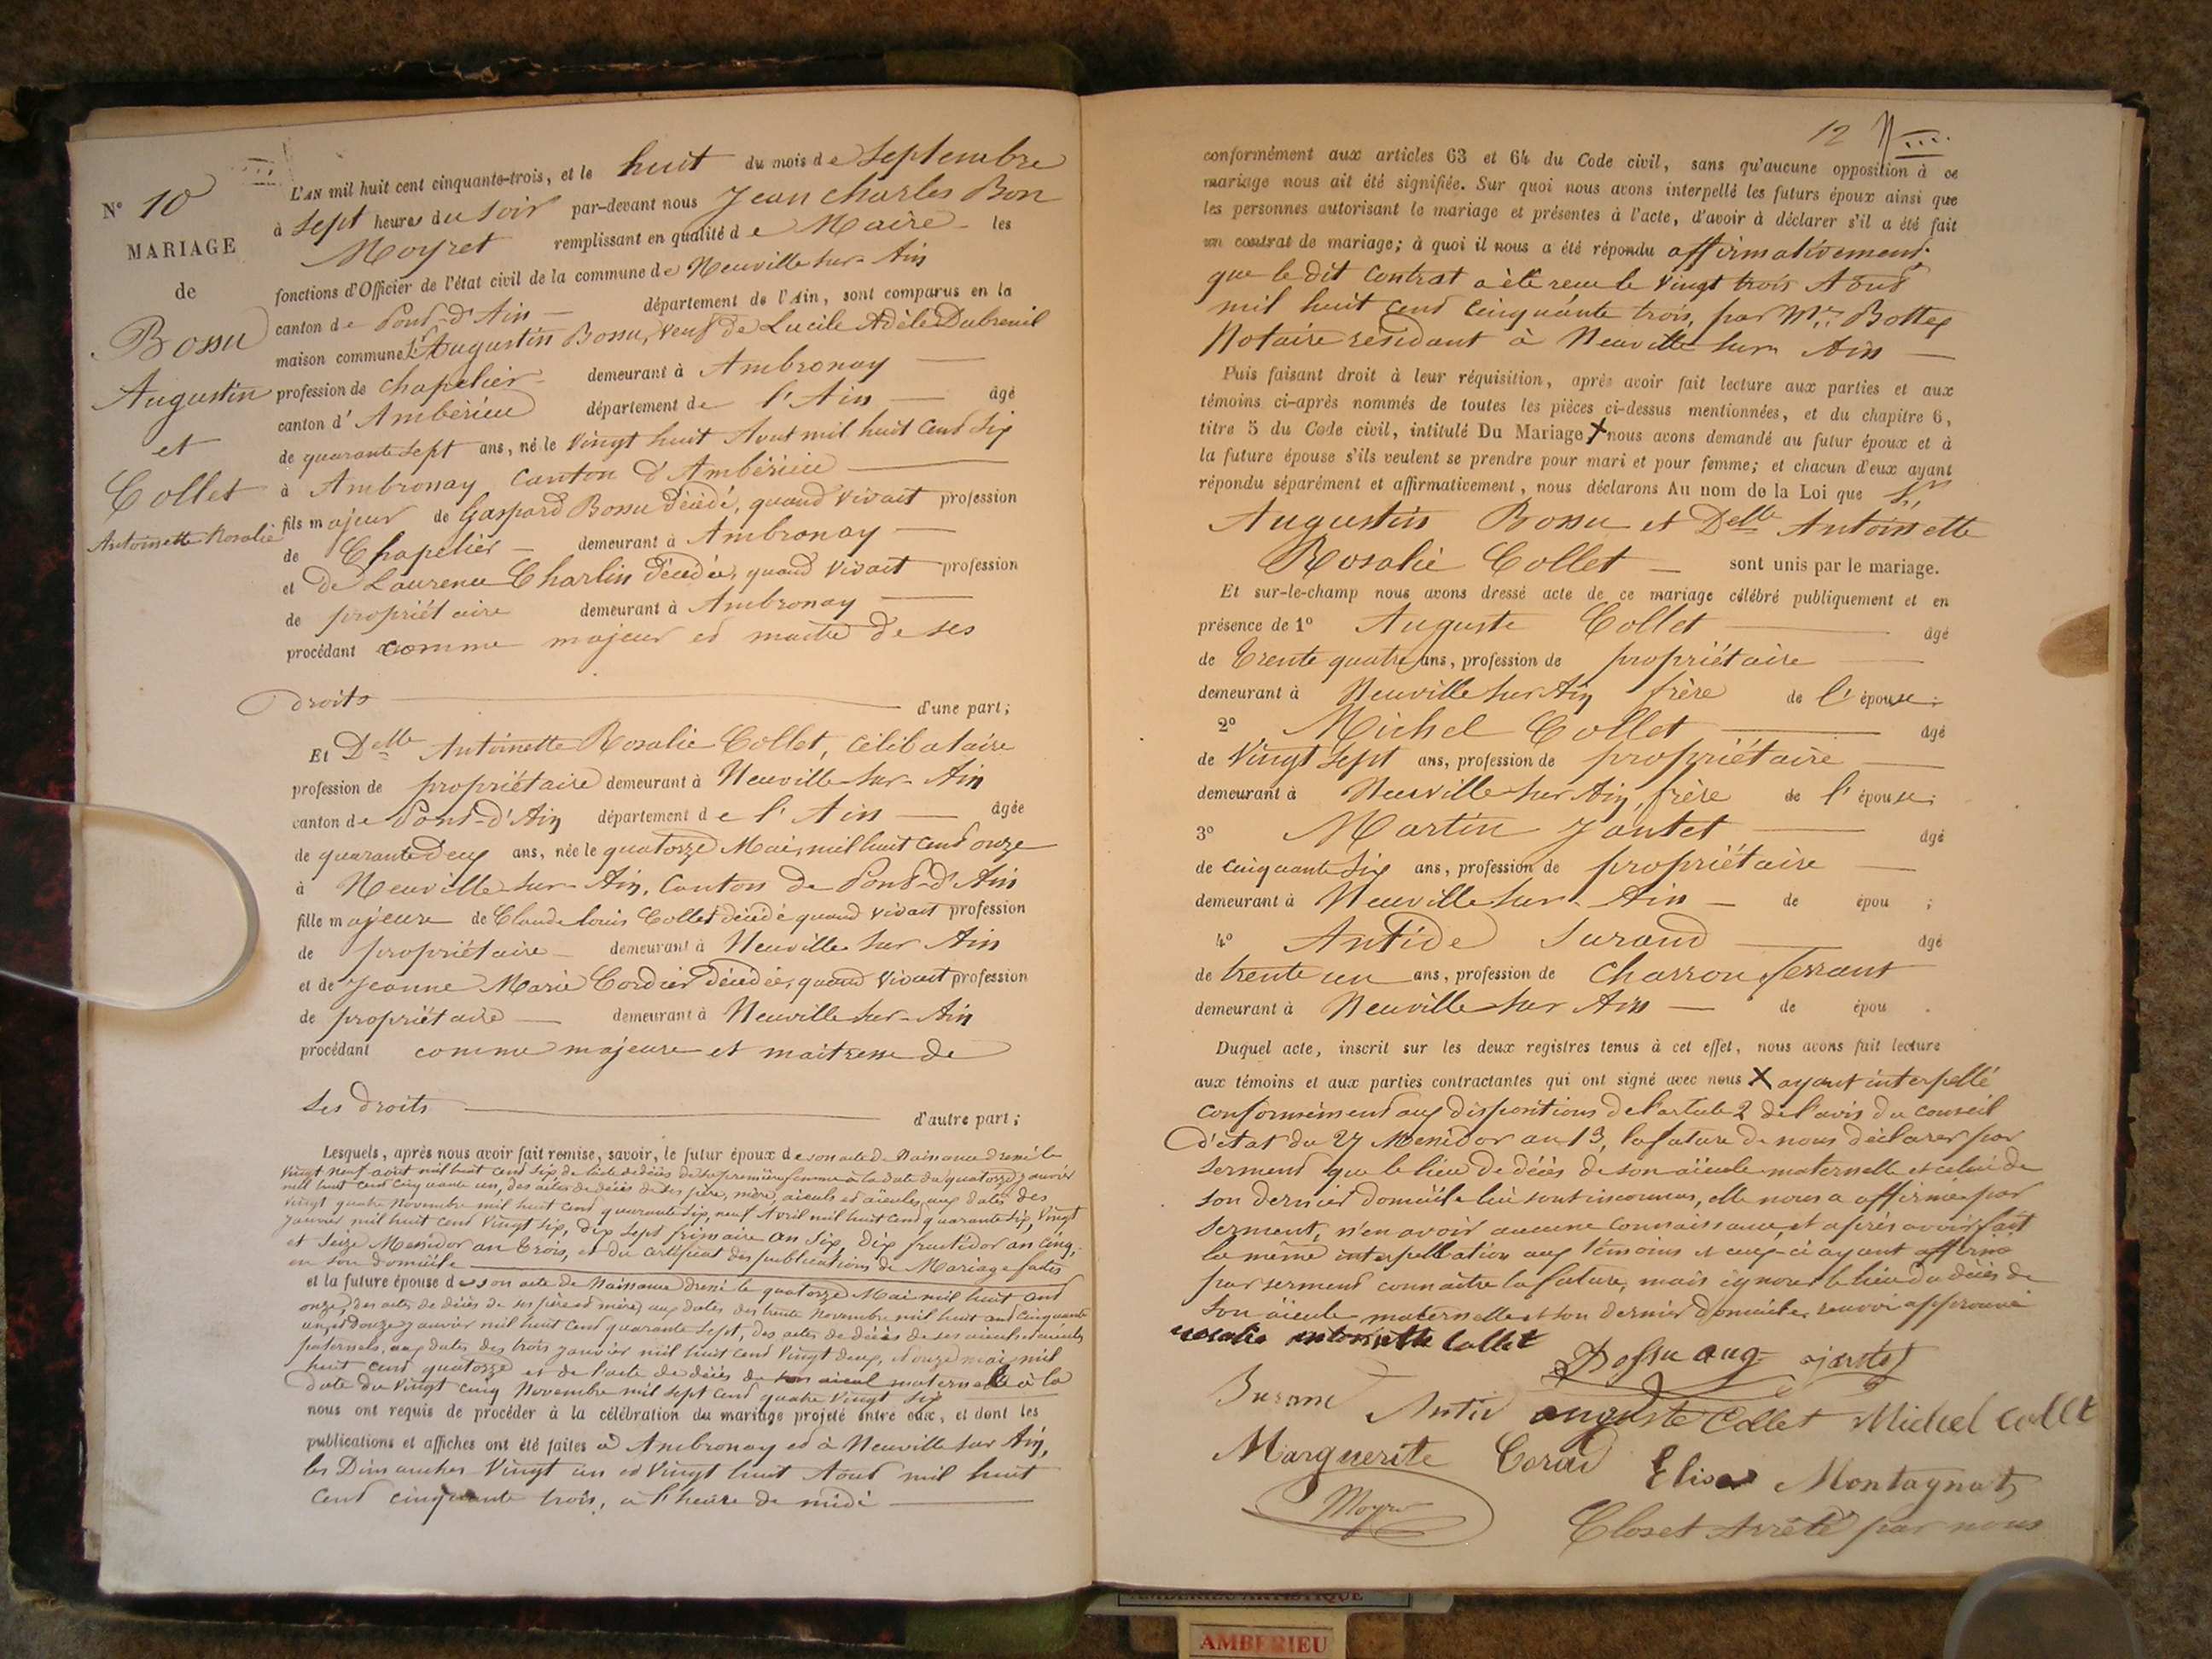 N° 10
MARIAGE
de
Bossu
Augustin
et
Collet
Antoinette Rosalie
L'AN mil huit cent cinquante-trois, et le huit du mois de Septembre
à Sept heures du Soir par-devant nous Jean Charles Bon
Moyret remplissant en qualité de Maire les
fonctions d'Officier de l'état civil de la commune de Neuville sur Ain
canton de Pont-d'Ain département de l'Ain, sont comparus en la
maison commune Sr Augustin Bossu, veuf de Lucile Adèle Dubreuil
profession de chapelier demeurant à Ambronay
canton d'Ambérieu département de l'Ain âgé
de quarante sept ans, né le vingt huit Aout mil huit cent six
à Ambronay Canton d'Ambérieu
fils majeur de Gaspard Bossu décédé, quand vivait profession
de Chapelier demeurant à Ambronay
et de Laurence Charlin décédée, quand vivait profession
de propriétaire demeurant à Ambronay
procédant comme majeur et maitre de ses
droits d'une part;
Et Delle Antoinette Rosalie Collet, célibataire
profession de propriétaire demeurant à Neuville sur Ain
canton de Pont-d'Ain département de l'Ain âgée
de quarante deux ans, née le quatorze Mai mil huit cent onze
à Neuville sur Ain, Canton de Pont-d'Ain
fille majeure de Claude Louis Collet décédé quand vivait profession
de propriétaire demeurant à Neuville sur Ain
et de Jeanne Marie Cordier décédée, quand vivait profession
de propriétaire demeurant à Neuville sur Ain
procédant comme majeure et maitresse de
ses droits d'autre part;
Lesquels, après nous avoir fait remise, savoir, le futur époux de son acte de Naissance dressé le
vingt neuf aout mil huit cent six, de l'acte de décès de sa première femme à la date du quatorze janvier
mil huit cent cinquante un, des actes de décès de ses père, mère, aïeuls et aïeules, aux dates des
vingt quatre Novembre mil huit cent quarante six, neuf Avril mil huit cent quarante six, vingt
janvier mil huit cent vingt six, dix sept frimaire an six, dix fructidor an cinq,
et seize Messidor an trois, et du certificat des publications de Mariage faites
en son domicile
et la future épouse de son acte de Naissance dressé le quatorze Mai mil huit cent
onze, des actes de décès de ses père et mère, aux dates des trente Novembre mil huit cent cinquante
un, et douze janvier mil huit cent quarante sept, des actes de décès de ses aïeul et aïeule
paternels, aux dates des trois janvier mil huit cent vingt deux, et onze mai mil
huit cent quatorze et de l'acte de décès de son aïeul maternelle à la
date du vingt cinq Novembre mil sept cent quatre vingt six
nous ont requis de procéder à la célébration du mariage projeté entre eux, et dont les
publications et affiches ont été faites à Ambronay et à Neuville sur Ain,
les Dimanches vingt un et vingt huit Aout mil huit
cent cinquante trois, à l'heure de midi
12
conformément aux articles 63 et 64 du Code civil, sans qu'aucune opposition à ce
mariage nous ait été signifiée. Sur quoi nous avons interpellé les futurs époux ainsi que
les personnes autorisant le mariage et présentes à l'acte, d'avoir à déclarer s'il a été fait
un contrat de mariage; à quoi il nous a été répondu affirmativement.
que le dit contrat a été recu le vingt trois Aout
mil huit cent cinquante trois, par Mre Bottex
Notaire résidant à Neuville sur Ain
Puis faisant droit à leur réquisition, après avoir fait lecture aux parties et aux
témoins ci-après nommés de toutes les pièces ci-dessus mentionnées, et du chapitre 6,
titre 5 du Code civil, intitulé Du Mariage X nous avons demandé au futur époux et à
la future épouse s'ils veulent se prendre pour mari et pour femme; et chacun d'eux ayant
répondu séparément et affirmativement, nous déclarons Au nom de la Loi que Sr
Augustin Bossu et Delle Antoinette
Rosalie Collet sont unis par le mariage.
Et sur-le-champ nous avons dressé acte de ce mariage célébré publiquement et en
présence de 1° Auguste Collet âgé
de trente quatre ans, profession de propriétaire
demeurant à Neuville sur Ain frère de l'épouse;
2° Michel Collet âgé
de vingt sept ans, profession de propriétaire
demeurant à Neuville sur Ain, frère de l'épouse;
3° Martin Jantet âgé
de cinquante six ans, profession de propriétaire
demeurant à Neuville sur Ain de épou ;
4° Antide Surand âgé
de trente un ans, profession de charron ferrant
demeurant à Neuville sur Ain de épou .
Duquel acte, inscrit sur les deux registres tenus à cet effet, nous avons fait lecture
aux témoins et aux parties contractantes qui ont signé avec nous X ayant interpellé
conformément aux dispositions de l'article 2 de l'avis du conseil
d'état du 27 Messidor an 13, la future de nous déclarer par
serment que le lieu de décès de son aïeule maternelle et celui de
son dernier domicile lui sont inconnus, elle nous a affirmé par
serment, n'en avoir aucune connaissance, et après avoir fait
la même interpellation aux témoins et ceux-ci ayant affirmé
par serment connaitre la future, mais ignorer le lieu du décès de
son aïeule maternelle et son dernier domicile renvoi approuvé
rosalie antoinette Collet
Bossu aug jantet
Surand Antid auguste Collet Michel Collet
Marguerite Elisa Montagnat
Moyret
Clos et Arrêté par nous
AMBERIEU ARTISTIQUE
AMBERIEU